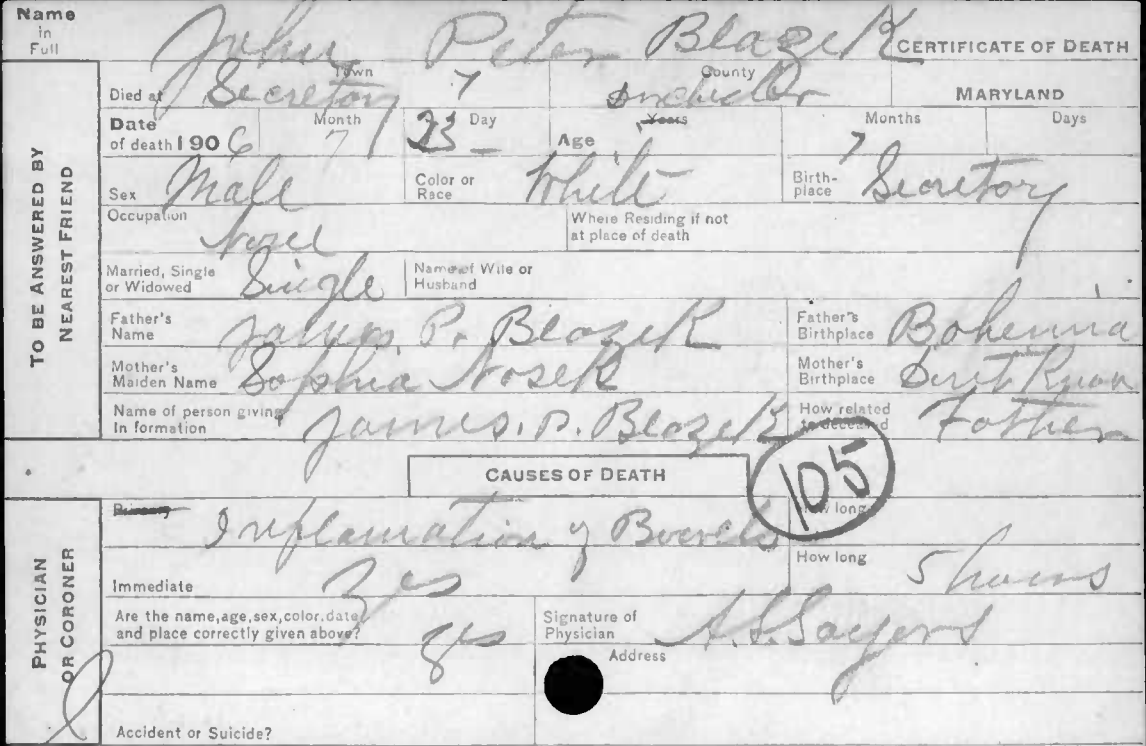 Name in Full John Peter Blazek CERTIFICATE OF DEATH
TO BE ANSWERED BY NEAREST FRIEND
Died at Secretory Town County MARYLAND
Date of death 1906 Month 7 Day 23 Age Years Months 7 Days
Sex Male Color or Race White Birthplace Secretory
Occupation Where Residing if not at place of death
Married, Single or Widowed Single Name of Wife or Husband
Father's Name James P. Blazek Father's Birthplace Bohemia
Mother's Maiden Name Sophia Nosek Mother's Birthplace
Name of person giving In formation James. P. Blazek How related to deceased Father
CAUSES OF DEATH
105
PHYSICIAN OR CORONER
Primary Inflamation of Bowels How long
Immediate Yes How long 5 hours
Are the name, age, sex, color, date and place correctly given above? Yes Signature of Physician A. S. Sayers
Address
Accident or Suicide?